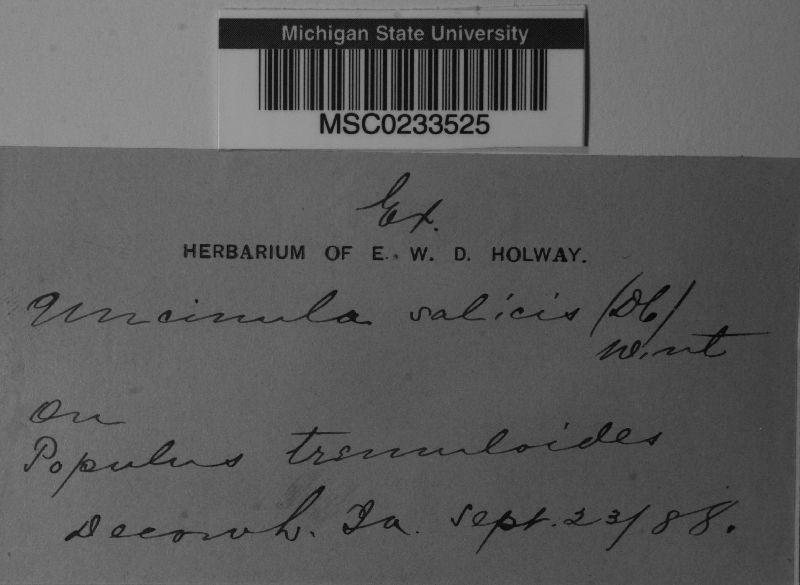 Michigan State University
MSC0233525
Ex.
HERBARIUM OF E. W. D. HOLWAY.
Uncinula salicis (DC)
Wint
On
Populus tremuloides
Decorah. Ia. Sept. 23/88.